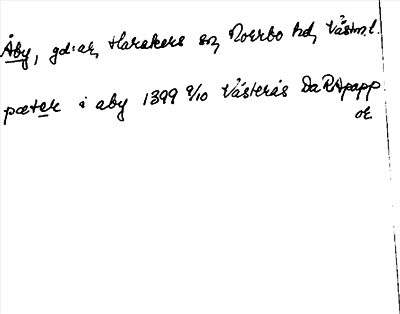 Åby, gd:ar, Harakers sn, Norrbo hd, Västm.l.
pæter i aby 1399 9/10 Västerås Da RApapp
or.